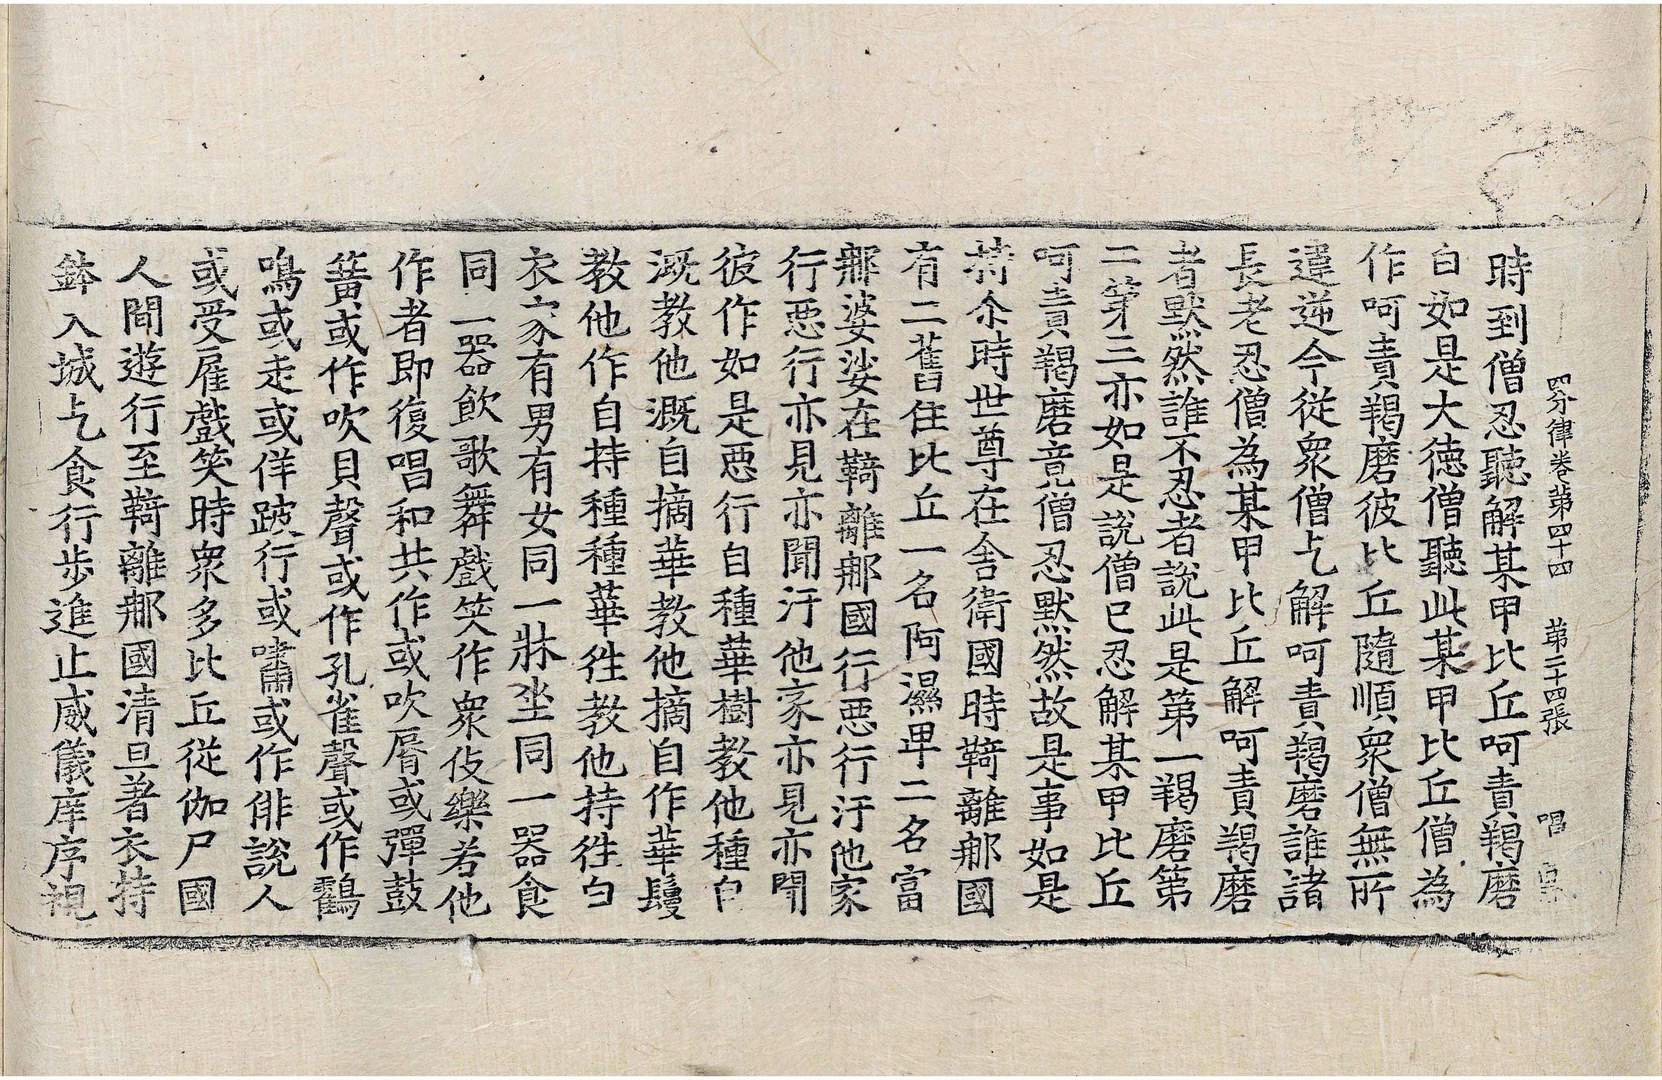 四分律卷第四十四　第二十四張　唱
時到僧忍聽解某甲比丘呵責羯磨
白如是大德僧聽此某甲比丘僧為
作呵責羯磨彼比丘隨順衆僧無所
違逆今從衆僧乞解呵責羯磨誰諸
長老忍僧為某甲比丘解呵責羯磨
者默然誰不忍者說此是第一羯磨第
二第三亦如是說僧已忍解某甲比丘
呵責羯磨竟僧忍默然故是事如是
持尒時世尊在舍衛國時䩭離𨚗國
有二舊住比丘一名阿濕卑二名富
𨚗婆娑在䩭離𨚗國行惡行汙他家
行惡行亦見亦聞汙他家亦見亦聞
彼作如是惡行自種華樹教他種自
溉教他溉自摘華教他摘自作華鬘
教他作自持種種華徃教他持徃白
衣家有男有女同一牀坐同一器食
同一器飲歌舞戲笑作衆伎樂若他
作者即復唱和共作或吹脣或彈鼓
簧或作吹貝聲或作孔雀聲或作鸛
鳴或走或佯跛行或嘯或作俳說人
或受雇戲笑時衆多比丘從伽尸國
人間遊行至䩭離𨚗國清旦著衣持
鉢入城乞食行步進止威儀庠序視